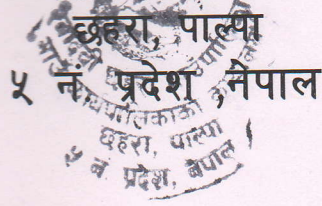 छहरा, पाल्पा
५ नं. प्रदेश ,नेपाल
छहरा, पाल्पा
५ नं प्रदेश, नेपाल